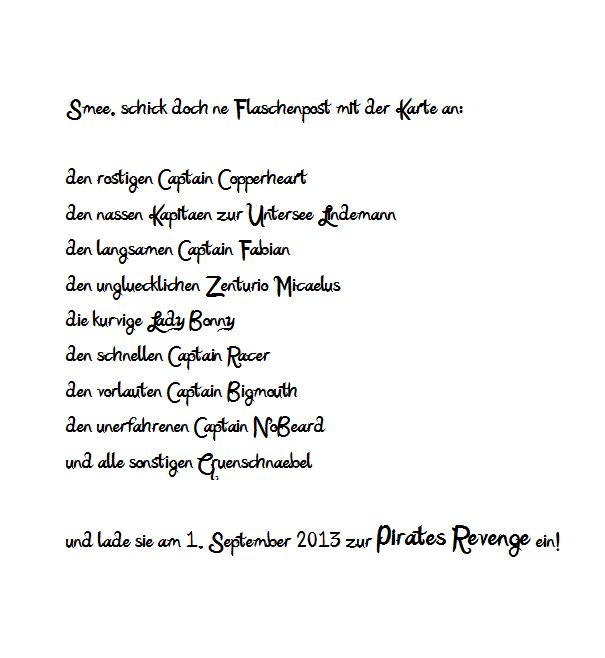 Smee, schick doch ne Flaschenpost mit der Karte an:
den rostigen Captain Copperheart
den nassen Kapitaen zur Untersee Lindemann
den langsamen Captain Fabian
den ungluecklichen Zenturio Micaelus
die kurvige Lady Bonny
den schnellen Captain Racer
den vorlauten Captain Bigmouth
den unerfahrenen Captain NoBeard
und alle sonstigen Gruenschnaebel
und lade sie am 1. September 2013 zur Pirates Revenge ein!